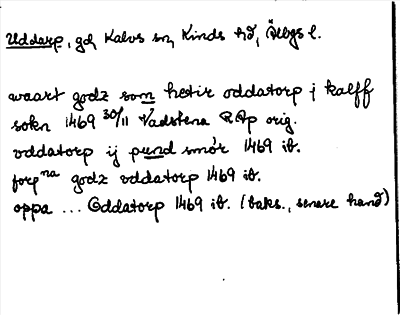 Uddarp, gd, Kalvs sn, Kinds hd, Älvgs l.
waart godz som hetir oddatorp j kalff
sokn 1469 30/11 Vadstena RAp orig.
oddatorp ij pund smör 1469 ib.
forpna godz oddatorp 1469 ib.
oppa ... Oddatorp 1469 ib. (baks., senare hand)